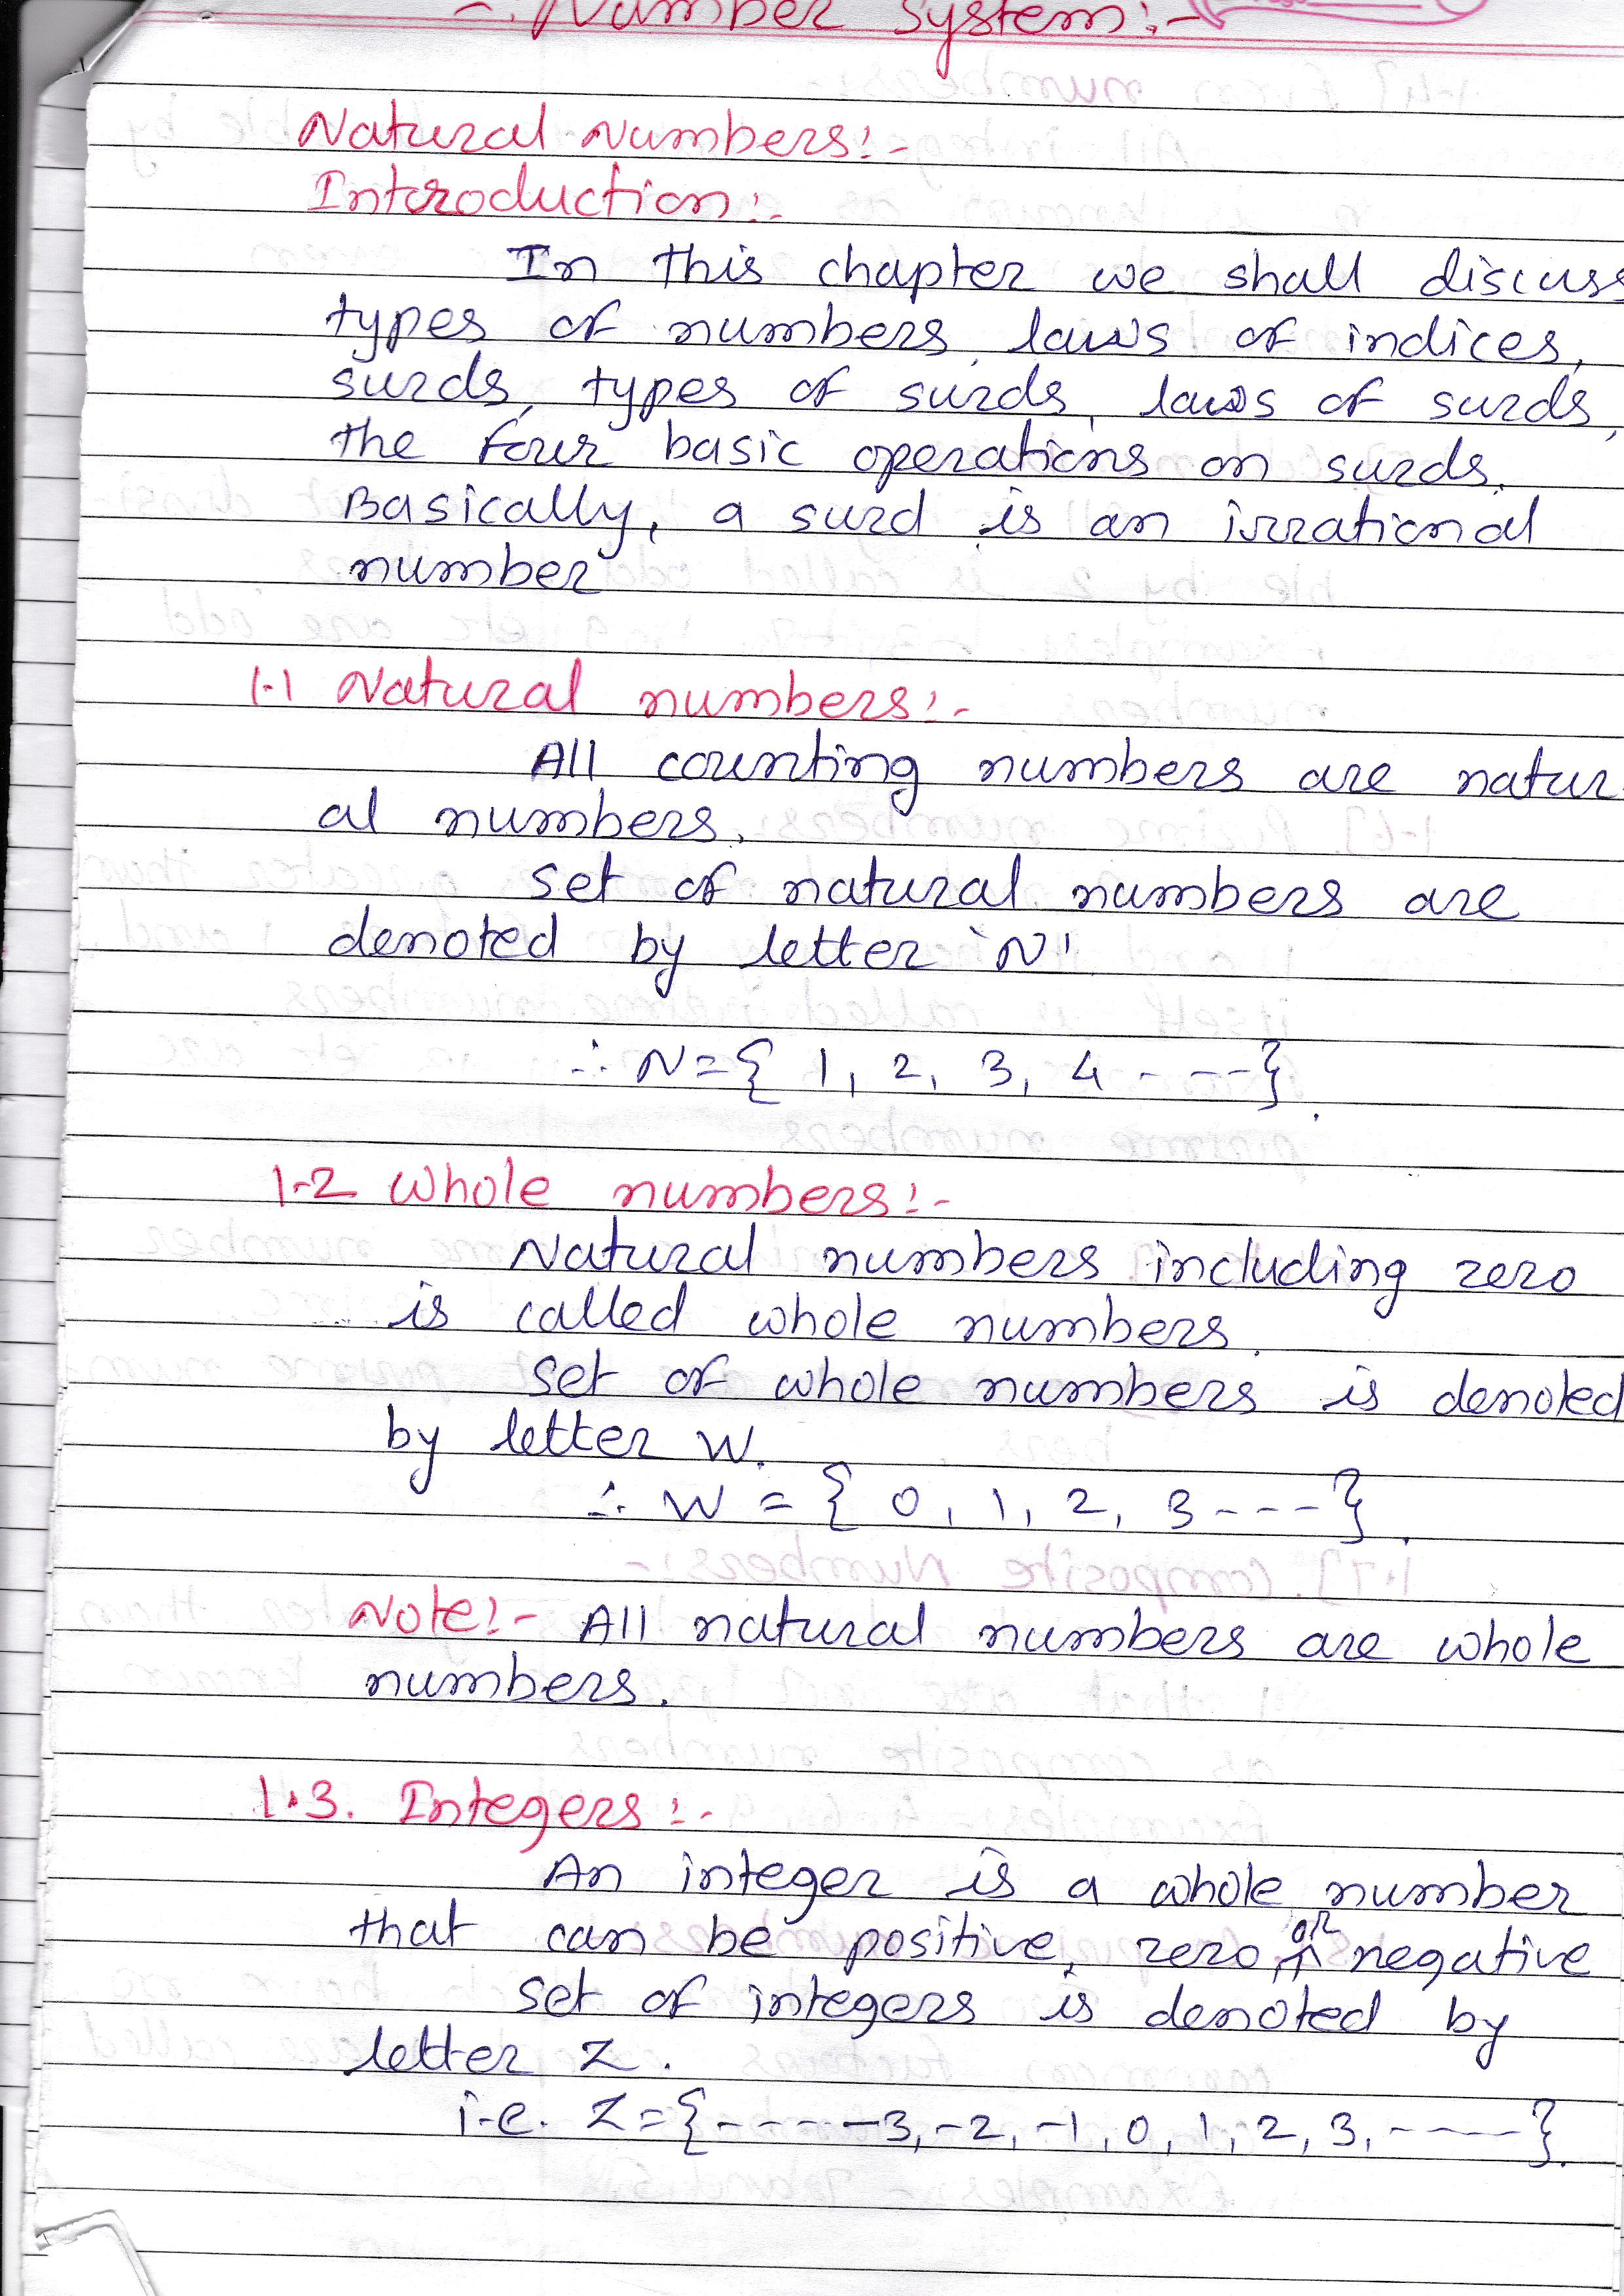 -: Number System:-
Natural Numbers:-
Introduction:-
In this chapter we shall discuss
types of numbers, laws of indices,
surds, types of surds, laws of surds,
the four basic operations on surds.
Basically, a surd is an irrational
number
1.1 Natural numbers:-
All counting numbers are natur-
al numbers.
Set of natural numbers are
denoted by letter 'N'
∴ N={ 1, 2, 3, 4 - --}.
1.2 Whole numbers:-
Natural numbers including zero
is called whole numbers.
Set of whole numbers is denoted
by letter W.
∴ W = { 0, 1, 2, 3 ---}.
Note:- All natural numbers are whole
numbers.
1.3. Integers:-
An integer is a whole number
that can be positive, zero, or negative
Set of integers is denoted by
letter Z.
i.e. Z={---- -3, -2, -1, 0, 1, 2, 3, ----}.